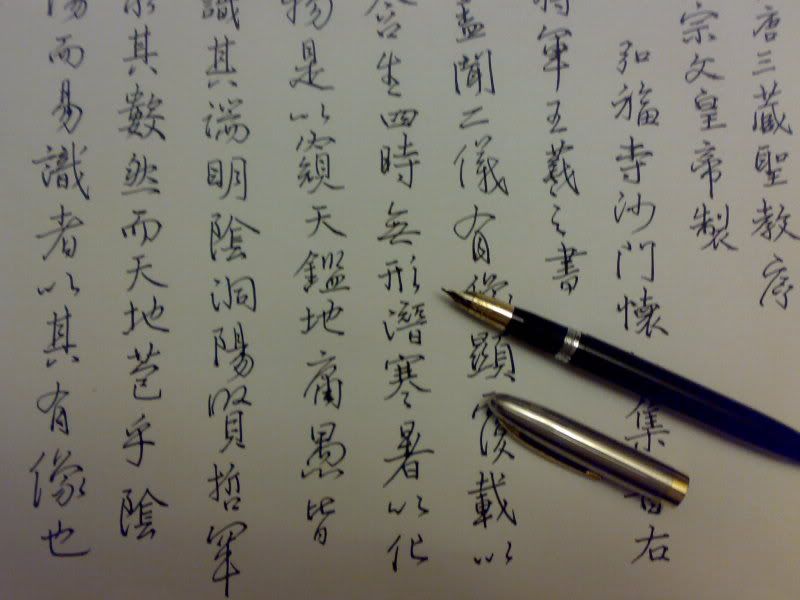 唐三藏聖教序
宗文皇帝製
弘福寺沙門懷集晉右
將軍王羲之書
蓋聞二儀有像顯覆載以
含生四時無形潛寒暑以化
物是以窺天鑑地庸愚皆
識其端明陰洞陽賢哲罕
其數然而天地苞乎陰
陽而易識者以其有像也